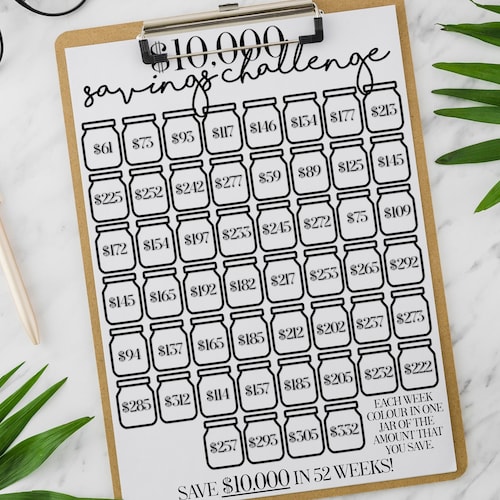 $10,000
savings challenge
$61 $73 $93 $117 $146 $134 $177 $213
$225 $252 $242 $277 $59 $89 $125 $145
$172 $154 $197 $233 $245 $272 $75 $109
$145 $165 $192 $182 $217 $253 $265 $292
$94 $137 $165 $185 $212 $202 $237 $273
$285 $312 $114 $157 $185 $205 $232 $222
$257 $293 $305 $332
EACH WEEK
COLOUR IN ONE
JAR OF THE
AMOUNT THAT
YOU SAVE.
SAVE $10,000 IN 52 WEEKS!